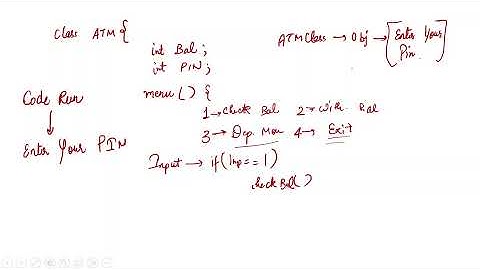 Class ATM {
int Bal;
int PIN;
menu() {
1→ Check Bal 2→ With Bal
3→ Dep. Mon 4→ Exit
Input → if(Inp==1)
checkBal()
ATM Class → Obj → [Enter Your Pin.]
Code Run
↓
Enter Your PIN